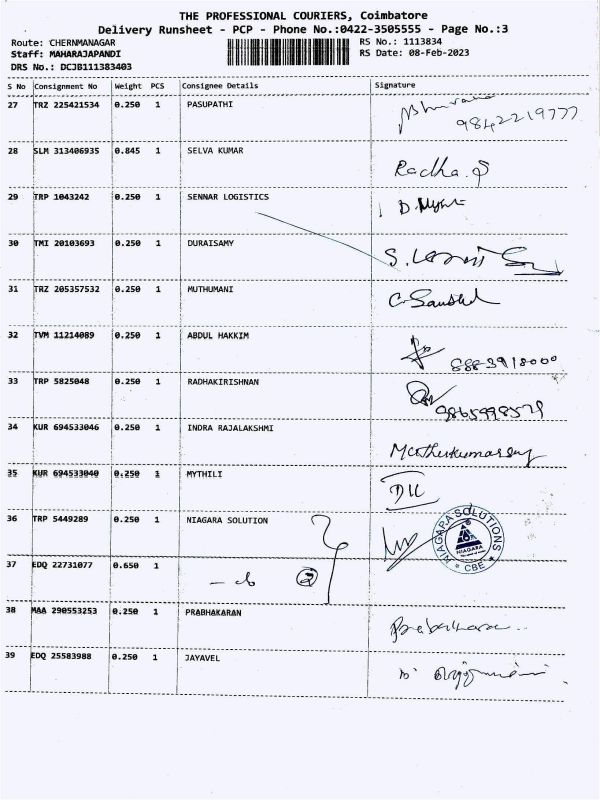 THE PROFESSIONAL COURIERS, Coimbatore
Delivery Runsheet - PCP - Phone No.:0422-3505555 - Page No.:3
Route: CHERNMANAGAR RS No.: 1113834
Staff: MAHARAJAPANDI RS Date: 08-Feb-2023
DRS No.: DCJB111383403
S No Consignment No Weight PCS Consignee Details Signature
27 TRZ 225421534 0.250 1 PASUPATHI
9842219777
28 SLM 313406935 0.845 1 SELVA KUMAR
Radha.
29 TRP 1043242 0.250 1 SENNAR LOGISTICS
30 TMI 20103693 0.250 1 DURAISAMY
31 TRZ 205357532 0.250 1 MUTHUMANI
32 TVM 11214089 0.250 1 ABDUL HAKKIM
33 TRP 5825048 0.250 1 RADHAKIRISHNAN
34 KUR 694533046 0.250 1 INDRA RAJALAKSHMI
35 KUR 694533040 0.250 1 MYTHILI
36 TRP 5449289 0.250 1 NIAGARA SOLUTION
NIAGARA SOLUTIONS
NIAGARA
* CBE *
37 EDQ 22731077 0.650 1
38 MAA 290553253 0.250 1 PRABHAKARAN
39 EDQ 25583988 0.250 1 JAYAVEL